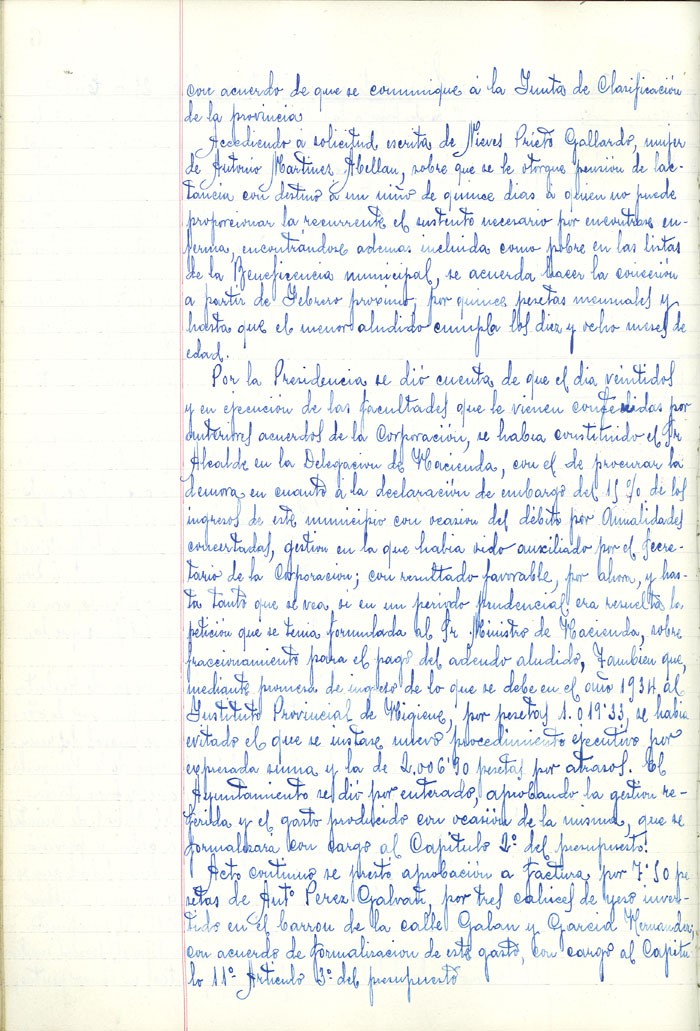 con acuerdo de que se comunique á la Junta de Clasificación
de la provincia
Accediendo á solicitud escrita de Nieves Prieto Gallardo, mujer
de Antonio Martinez Abellan, sobre que se le otorgue pensión de lac-
tancia con destino á un niño de quince dias á quien no puede
proporcionar la recurrente el sustento necesario por encontrarse en-
ferma, encontrándose ademas incluida como pobre en las listas
de la Beneficencia municipal, se acuerda hacer la concesión
a partir de Febrero proximo, por quince pesetas mensuales y
hasta que el menor aludido cumpla los diez y ocho meses de
edad.
Por la Presidencia se dió cuenta de que el dia veintidos
y en ejecución de las facultades que le vienen conferidas por
anteriores acuerdos de la Corporación, se habia constituido el Sr
Alcalde en la Delegacion de Hacienda, con el de procurar la
demora en cuanto á la declaración de embargo del 15 % de los
ingresos de este municipio con ocasion del débito por Anualidades
concertadas, gestion en la que habia sido auxiliado por el Secre-
tario de la Corporacion; con resultado favorable, por ahora, y has-
ta tanto que se vea, si en un periodo prudencial era resuelta la
petición que se tenia formulada al Sr. Ministro de Hacienda, sobre
fraccionamiento para el pago del adeudo aludido, Tambien que,
mediante promesa de ingreso de lo que se debe en el año 1934 al
Instituto Provincial de Higiene, por pesetas 1.019'33, se habia
evitado el que se instase nuevo procedimiento ejecutivo por
expresada suma y la de 2.006'90 pesetas por atrasos. El
Ayuntamiento se dió por enterado, aprobando la gestion re-
ferida y el gasto producido con ocasión de la misma, que se
formalizará con cargo al Capitulo 1º del presupuesto.
Acto continuo se prestó aprobación a factura por 7'50 pe
setas de Antº Perez Galvañ, por tres cahices de yeso inver-
tido en el barrón de la calle Galan y Garcia Hernandez,
con acuerdo de formalizacion de este gasto, con cargo al Capitu
lo 11º Articulo 3º del presupuesto